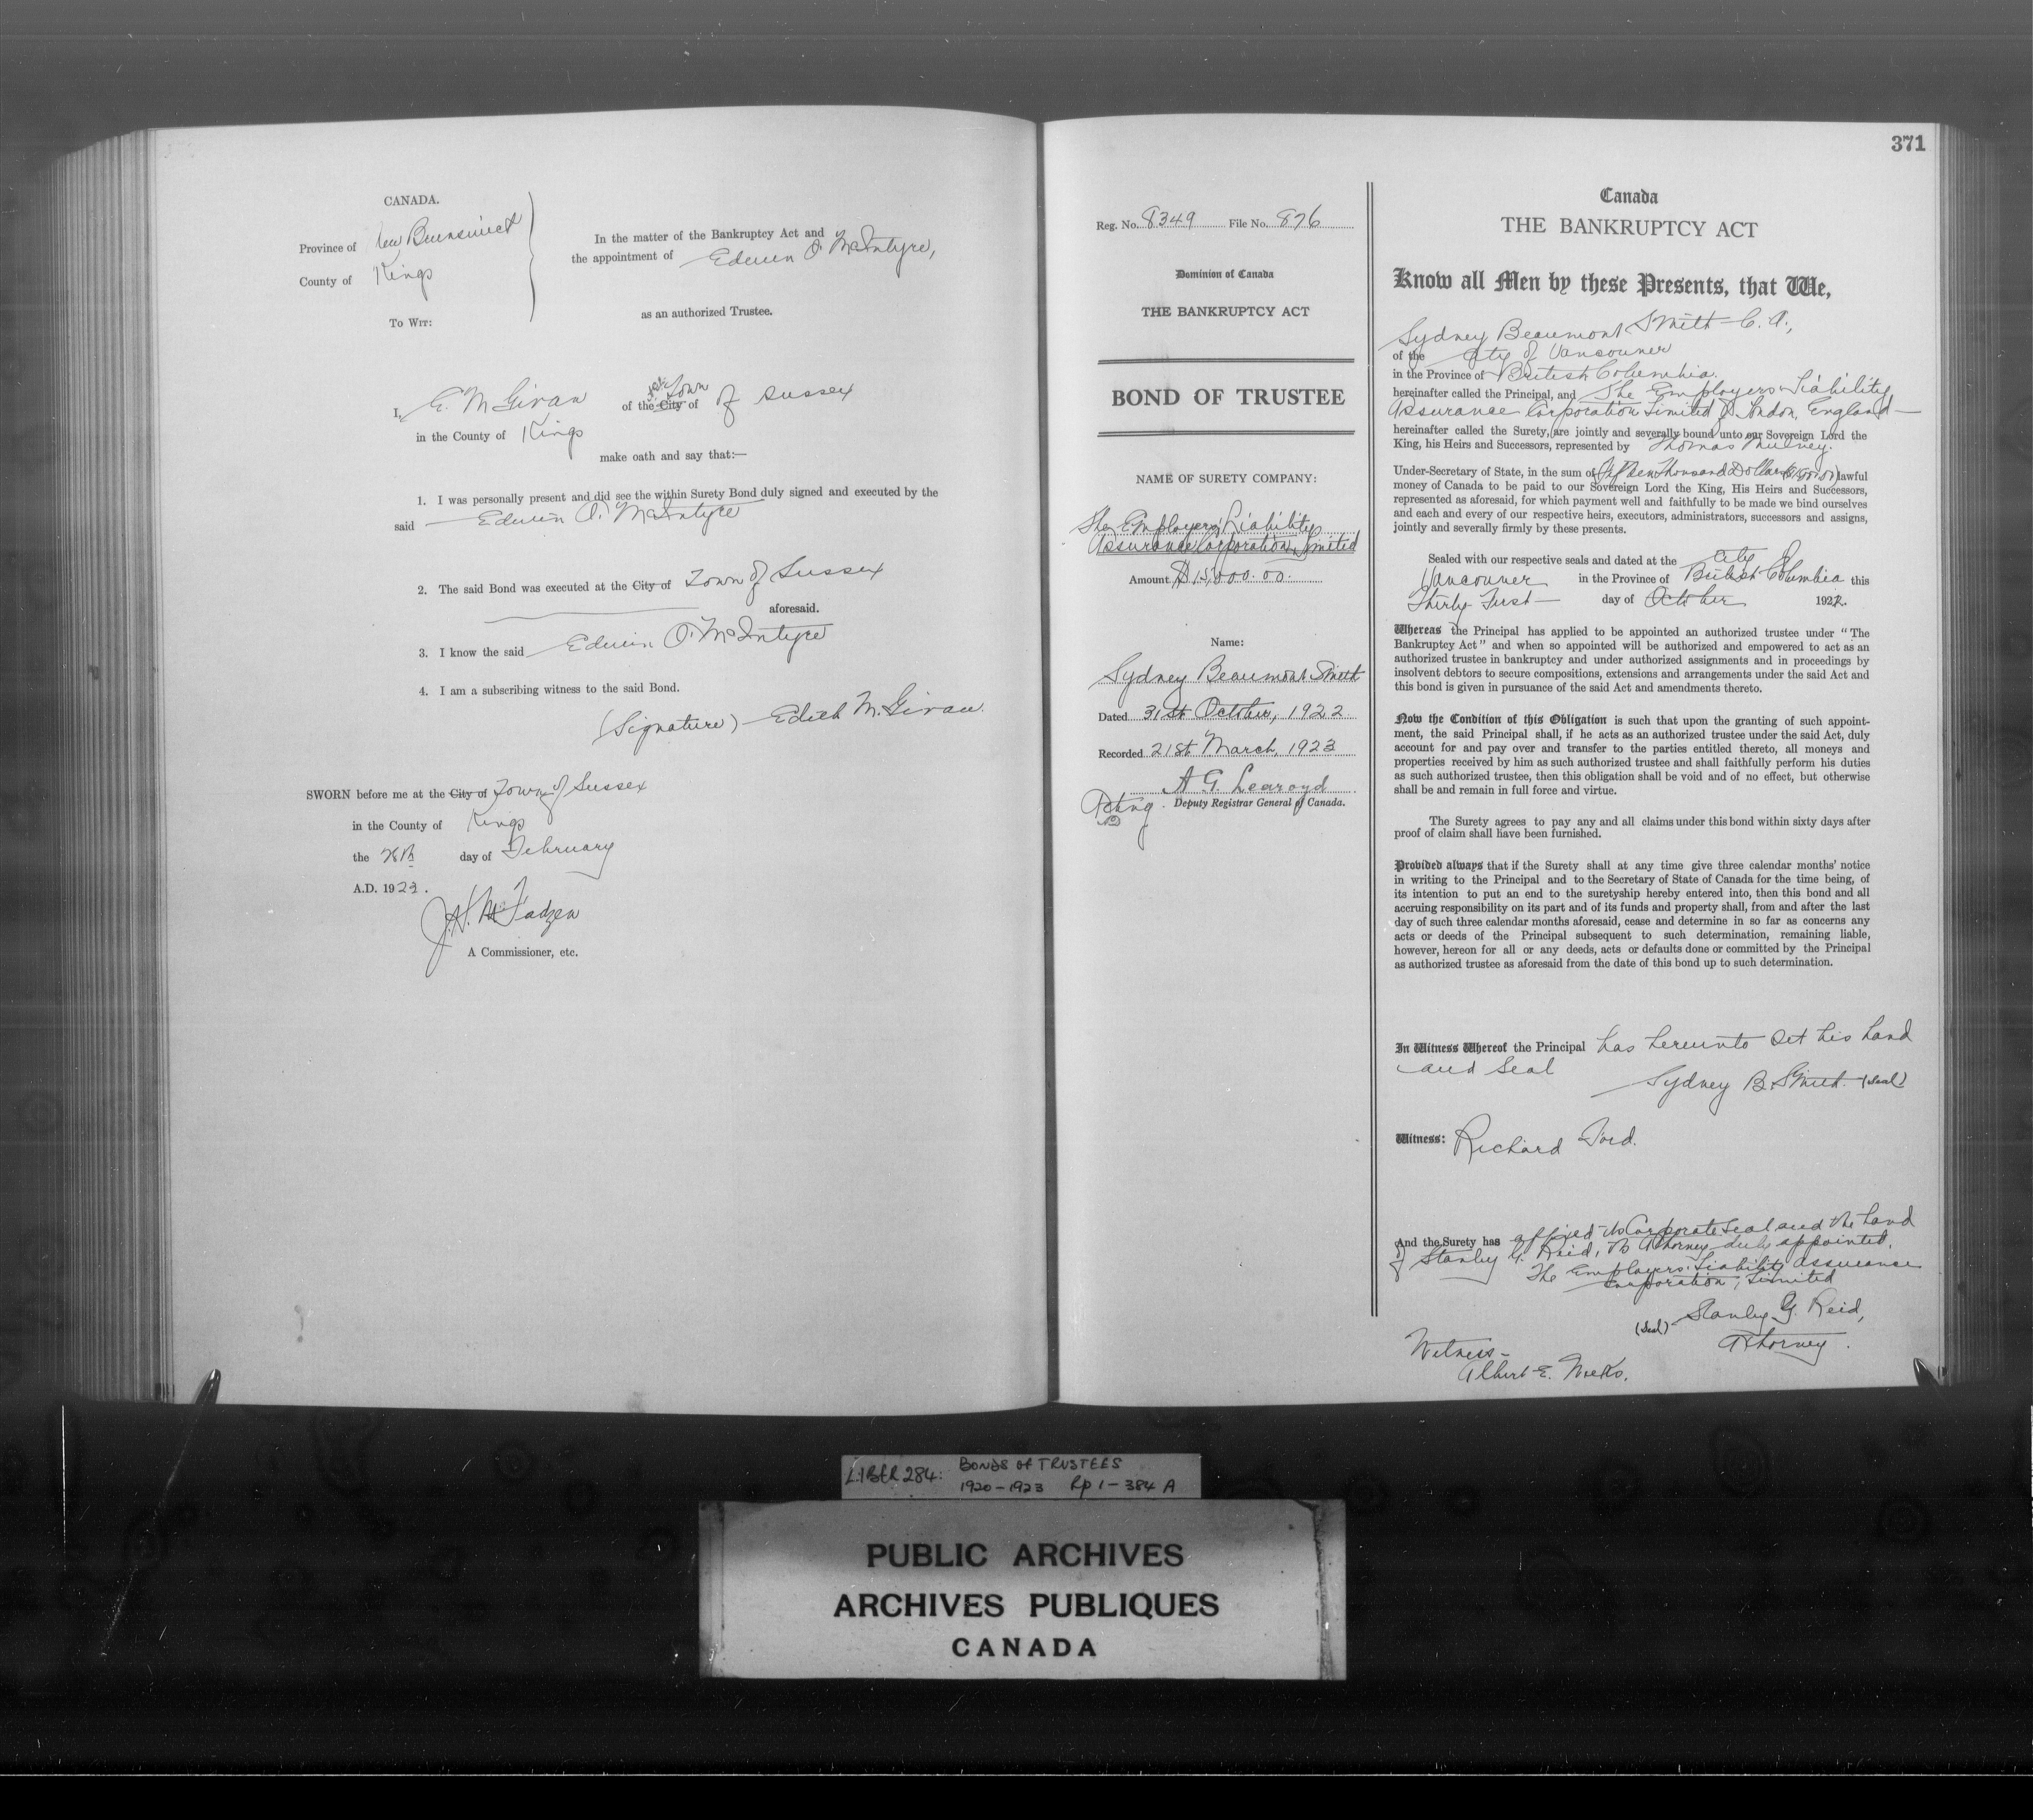 CANADA.
Province of New Brunswick
County of Kings
To Wit:
In the matter of the Bankruptcy Act and
the appointment of Edwin O. McIntyre,
as an authorized Trustee.
I, E. M Girvan of the City of Town of Sussex
in the County of Kings
make oath and say that:—
1. I was personally present and did see the within Surety Bond duly signed and executed by the
said Edwin O. McIntyre
2. The said Bond was executed at the City of Town of Sussex
aforesaid.
3. I know the said Edwin O. McIntyre
4. I am a subscribing witness to the said Bond.
(Signature) — Edith M. Girvan.
SWORN before me at the City of Town of Sussex
in the County of Kings
the day of February
A.D. 1923.
A Commissioner, etc.
Reg. No. 8349 File No. 876
Dominion of Canada
THE BANKRUPTCY ACT
BOND OF TRUSTEE
NAME OF SURETY COMPANY:
The Employers' Liability
Assurance Corporation, Limited
Amount $15,000.00.
Name:
Sydney Beaumont Smith
Dated 31st October, 1922
Recorded 21st March, 1923
A G. Learoyd
Acting Deputy Registrar General of Canada.
371
Canada
THE BANKRUPTCY ACT
Know all Men by these Presents, that We,
Sydney Beaumont Smith C. A.,
of the City of Vancouver
in the Province of British Columbia.
hereinafter called the Principal, and The Employers Liability
Assurance Corporation Limited of London, England—
hereinafter called the Surety, are jointly and severally bound unto our Sovereign Lord the
King, his Heirs and Successors, represented by Thomas Mulvey.
Under-Secretary of State, in the sum of Fifteen Thousand Dollars lawful
money of Canada to be paid to our Sovereign Lord the King, His Heirs and Successors,
represented as aforesaid, for which payment well and faithfully to be made we bind ourselves
and each and every of our respective heirs, executors, administrators, successors and assigns,
jointly and severally firmly by these presents.
Sealed with our respective seals and dated at the City of
Vancouver in the Province of British Columbia this
Thirty First — day of October 1922.
Whereas the Principal has applied to be appointed an authorized trustee under "The
Bankruptcy Act" and when so appointed will be authorized and empowered to act as an
authorized trustee in bankruptcy and under authorized assignments and in proceedings by
insolvent debtors to secure compositions, extensions and arrangements under the said Act and
this bond is given in pursuance of the said Act and amendments thereto.
Now the Condition of this Obligation is such that upon the granting of such appoint-
ment, the said Principal shall, if he acts as an authorized trustee under the said Act, duly
account for and pay over and transfer to the parties entitled thereto, all moneys and
properties received by him as such authorized trustee and shall faithfully perform his duties
as such authorized trustee, then this obligation shall be void and of no effect, but otherwise
shall be and remain in full force and virtue.
The Surety agrees to pay any and all claims under this bond within sixty days after
proof of claim shall have been furnished.
Provided always that if the Surety shall at any time give three calendar months' notice
in writing to the Principal and to the Secretary of State of Canada for the time being, of
its intention to put an end to the suretyship hereby entered into, then this bond and all
accruing responsibility on its part and of its funds and property shall, from and after the last
day of such three calendar months aforesaid, cease and determine in so far as concerns any
acts or deeds of the Principal subsequent to such determination, remaining liable,
however, hereon for all or any deeds, acts or defaults done or committed by the Principal
as authorized trustee as aforesaid from the date of this bond up to such determination.
In Witness Whereof the Principal has hereunto set his hand
and seal
Sydney B. Smith. (Seal)
Witness: Richard
And the Surety has affixed its Corporate Seal and the hand
of Stanley G. Reid, its Attorney duly appointed.
The Employers' Liability Assurance
Corporation, Limited
(Seal) Stanley G. Reid,
Attorney.
Witness—
Albert E.
LIBER 284: BONDS OF TRUSTEES
1920-1923 Pp 1-384 A
PUBLIC ARCHIVES
ARCHIVES PUBLIQUES
CANADA